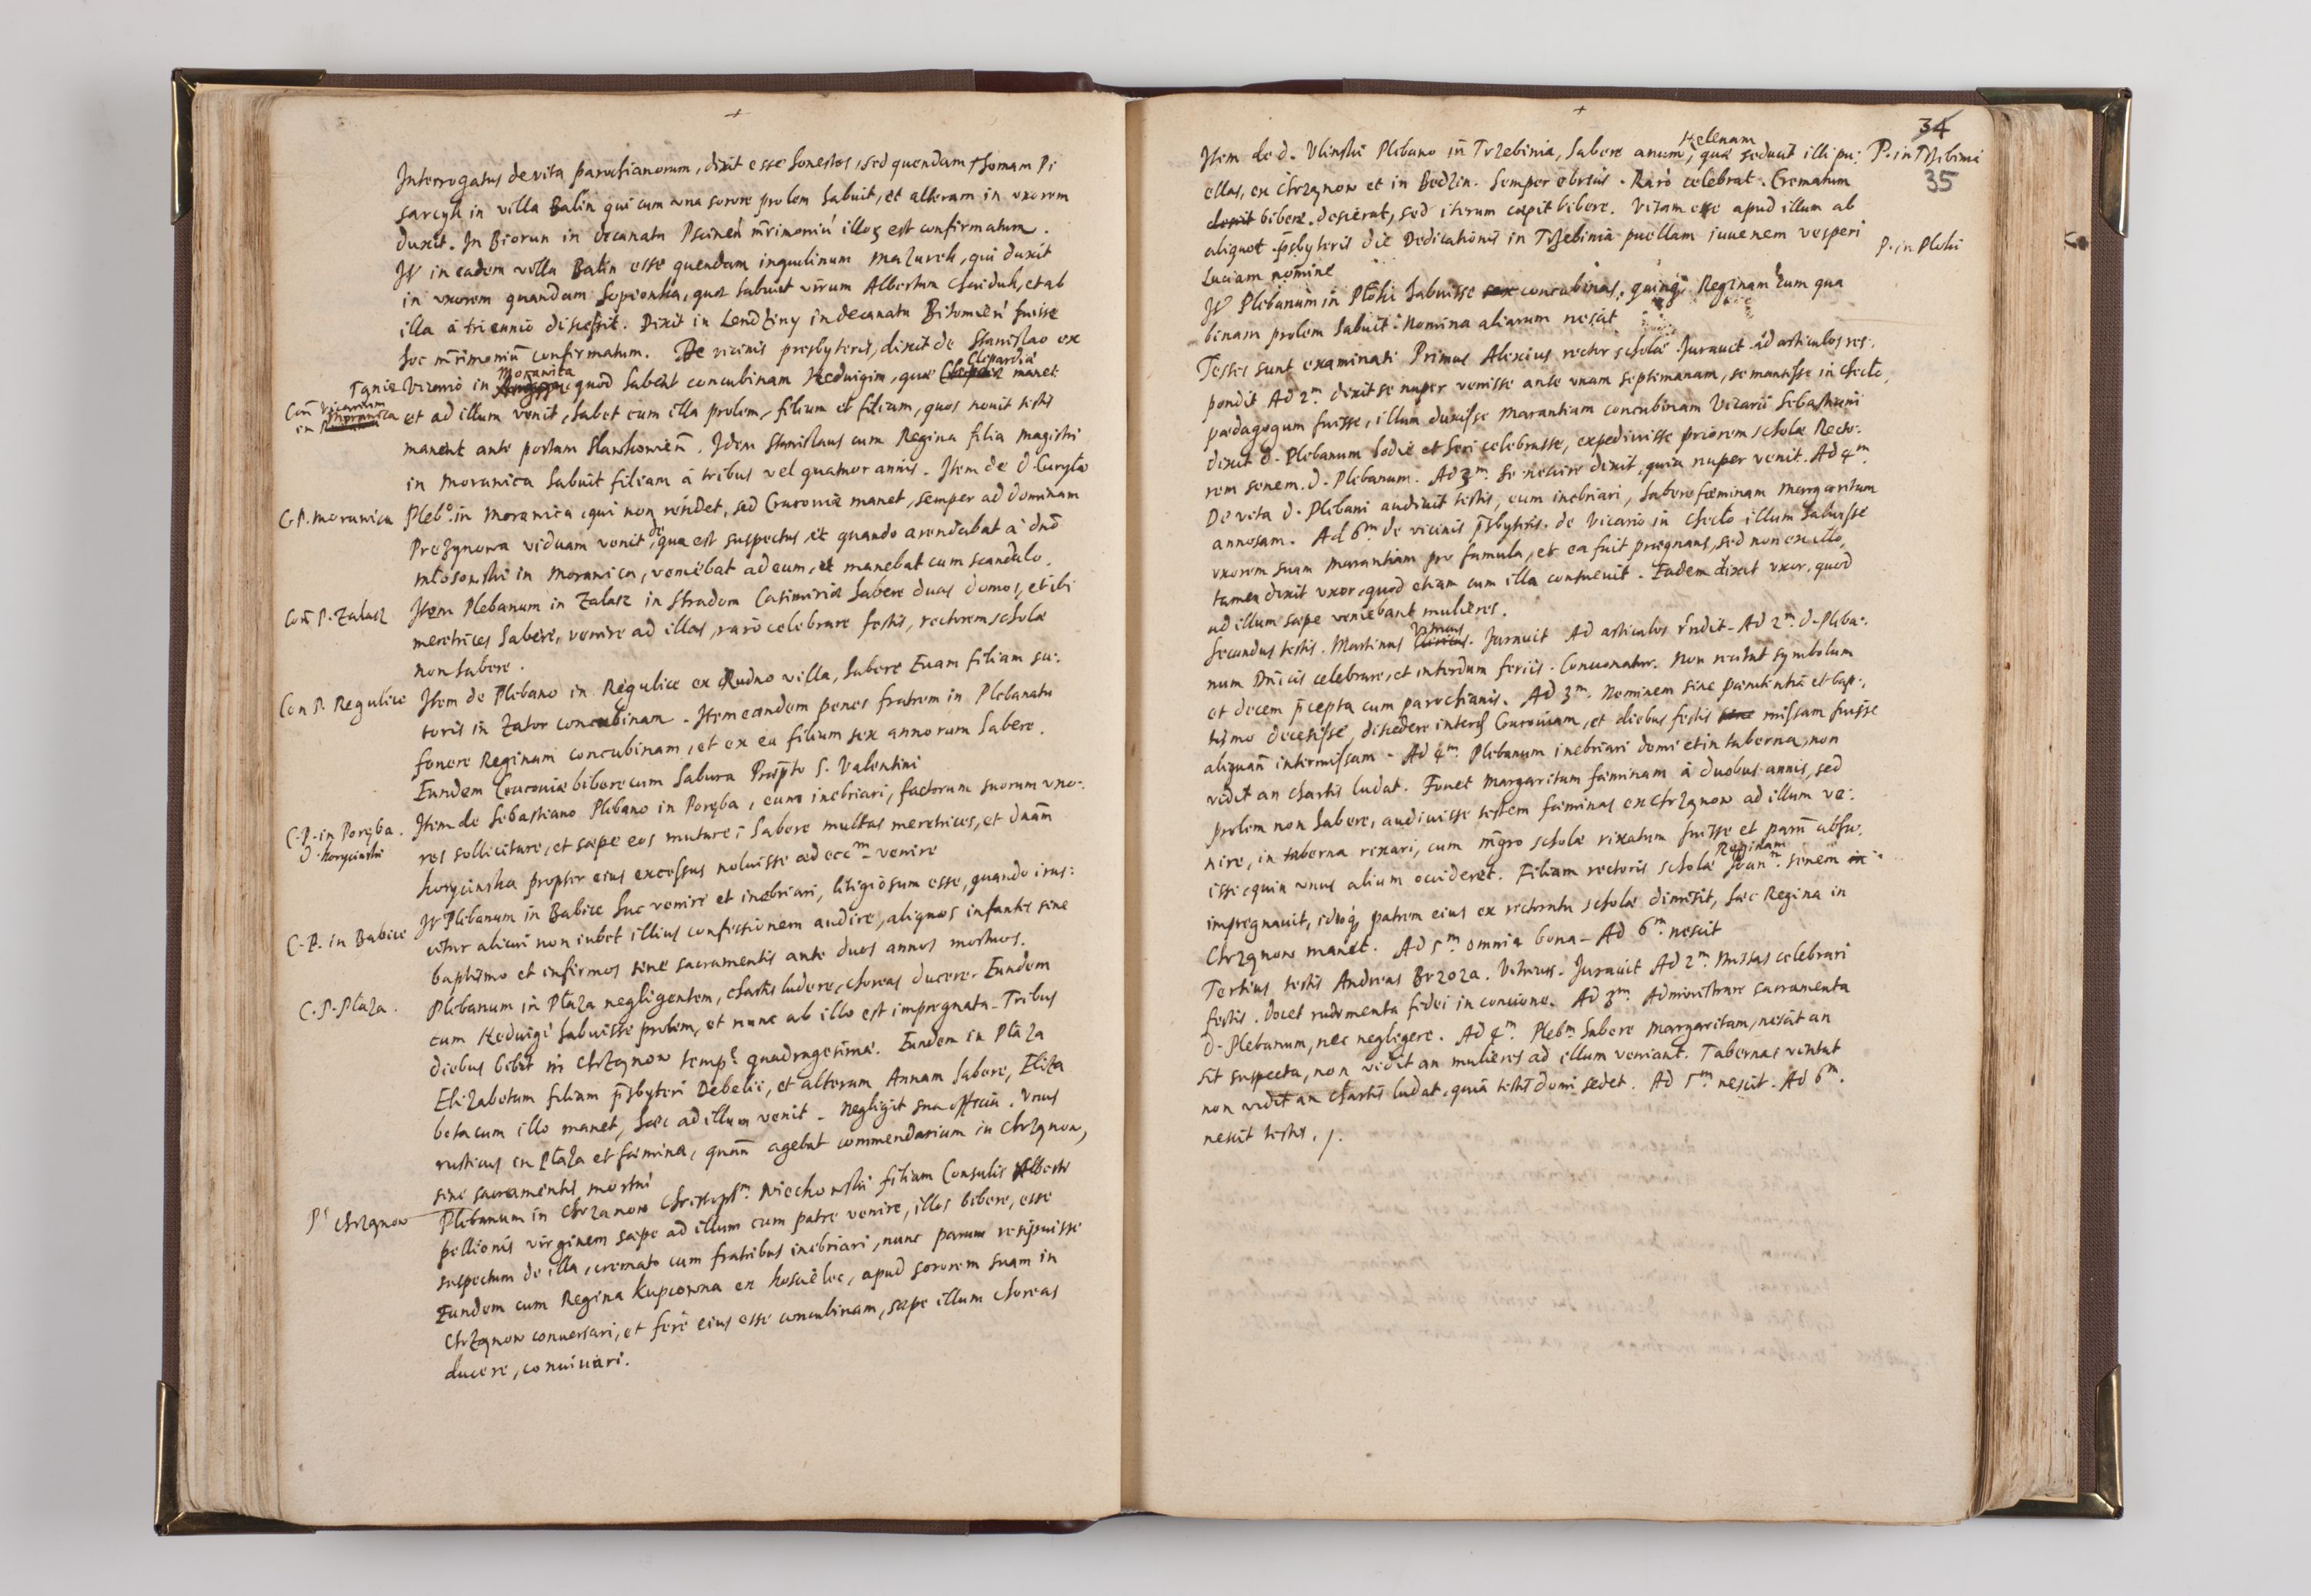 +
Interrogatus de vita parochianorum, dixit esse honestos, sed quendam Thomam Pi
sarczyk in villa Balin qui cum una sorore prolem habuit, et alteram in uxorem
duxit. In Biorun in decanatu Pscineń m̄rimoniū illoꝝ est confirmatum.
Itē in eadem villa Balin esse quendam inquilinum Mazurek, qui duxit
in uxorem quandam Sopionka, quæ habuit virum Albertum Chaiduk, et ab
illa à triennio discessit. Dixit in Lendziny in decanatu Bitomień fuisse
hoc m̄rimoniū confirmatum. De vicinis presbyteris, dixit de Stanislao ex
Tęnin Vicario in Moranica quod habeat concubinam Hedvigim, quæ Clepardiæ manet
Con̄ Vicarium
in Moranica
et ad illum venit, habet cum illa prolem, filium et filiam, quos novit testis
manent ante portam Slawkowień. Idem Stanislaus cum Regina filia magistri
in Moranica habuit filiam à tribus vel quatuor annis. Item de d. Curyło
C. P. Moranica
Pleb.º in Moranica, qui non rēsidet, sed Cracoviæ manet, semper ad dominam
viduam venit, de qua est suspectus, et quando arendabat à dn̄o
in Moranica, veniebat ad eum, et manebat cum scandalo.
Con̄ P. Zalasz
Item Plebanum in Zalasz in Stradom Casimiriæ habere duas domos, et ibi
meretrices habere, venire ad illas, rarò celebrare festis, rectorem scholæ
non habere.
Con P. Regulice
Item de Plebano in Regulice ex Rudno villa, habere Evam filiam su:
toris in Zator concubinam. Item eandem penes fratrem in Plebanatu
fovere Reginam concubinam, et ex ea filium sex annorum habere.
Eundem Cracoviæ bibere cum Sabura Præp̄to S. Valentini
C. P. in Poręba.
D. Korycinski
Item de Sebastiano Plebano in Poręba, eum inebriari, factorum suorum uxo:
res sollicitare, et sæpe eos mutare; habere multas meretrices, et dn̄am
Korycinska propter eius excessus noluisse ad ecc.m venire
C. P. in Babice
Itē Plebanum in Babice huc venire et inebriari, litigiosum esse, quando iras:
citur alicui non iubet illius confessionem audire, aliquos infantes sine
baptismo et infirmos sine sacramentis ante duos annos mortuos.
C. P. Płaza.
Plebanum in Płaza negligentem, chartis ludere, choreas ducere. Eundem
cum Hedvigi habuisse prolem, et nunc ab illo est impregnata. Tribus
diebus bibit in Chrzanow temp.e quadragesimæ. Eundem in Płaza
Elizabetam filiam p̄sbyteri Debelic, et alteram Annam habere, Eliza
beta cum illo manet, hæc ad illum venit. Negligit sua officia. Unus
rusticus in Płaza et fœmina, quan̄ agebat commendarium in Chrzanow,
sine sacramentis mortui
P.s Chrzanow
Plebanum in Chrzanow Christoph.m Niechowski filiam Consulis Alberti
pellionis virginem sæpe ad illum cum patre venire, illos bibere, esse
suspectum de illa, cremato cum fratribus inebriari, nunc parum resipuisse
Eundem cum Regina Kupcowna ex Koscielec, apud sororem suam in
Chrzanow conversari, et ferè eius esse concubinam, sæpe illum choreas
ducere, convivari.
+
34
35
P. in Trzebinia
Item de d. Ulinski Plebano in Trzebinia, habere anum Helenam, quæ seducit illi pu:
ellas, ex Chrzanow et in Bedzin. Semper ebrius. Rarò celebrat. Crematum
desiit bibere. desierat, sed iterum cœpit bibere. Vitam esse apud illum ab
aliquot p̄sbyteris die Dedicationis in Trzebinia puellam iuvenem vesperi
Luciam nomine
P. in Płoki
Itē Plebanum in Płoki habuisse sex concubinas, Reginam cum qua
binam prolem habuit. Nomina aliarum nescit
Testes sunt examinati Primus Alexius rector scholæ. Juravit ad articulos res:
pondit Ad 2.m dixit se nuper venisse ante unam septimanam, se mansisse in Checlo,
pædagogum fuisse, illum duxisse Marantiam concubinam Vicarii Sebastiani
dixit d. Plebanum hodie et heri celebrasse, expedivisse priorem scholæ Recto:
rem senem d. Plebanum. Ad 3.m se nescire dixit, quia nuper venit. Ad 4.m
De vita d. Plebani audivit testis, eum inebriari, habere fœminam Margaritam
annosam. Ad 6.m de vicinis p̄sbyteris. de Vicario in Checlo illum habuisse
uxorem suam Marantiam pro famula, et ea fuit prægnans, sed non ex illo,
tamen dixit uxor, quod etiam cum illa consuevit. Eadem dixit uxor, quod
ad illum sæpe veniebant mulieres.
Secundus testis. Martinus Vitricus. Juravit Ad articulos r̄ndit. Ad 2.m d. Pleba:
num Dn̄icis celebrare, et interdum feriis. Concionatur. Non recitat symbolum
et decem p̄cepta cum parochianis. Ad 3.m Neminem sine pœnitentia et bap:
tismo decessisse, discedere interd. Cracoviam, et diebus festis sine missam fuisse
aliquan̄ intermissam. Ad 4.m Plebanum inebriari domi et in taberna, non
vidit an chartis ludat. Fovet Margaritam fœminam à duobus annis, sed
prolem non habere, audivisse testem fœminas ex Chrzanow ad illum ve:
nire, in taberna rixari, cum m̄gro scholæ rixatum fuisse et parū abfu:
isse quin unus alium occideret. Filiam rectoris scholæ Reginam Joan.m senem in:
impregnavit, idoq́ patrem eius ex rectoratu scholæ dimisit, hæc Regina in
Chrzanow manet. Ad 5.m omnia bona. Ad 6.m nescit
Tertius testis Andreas Brzoza. Vitricus. Juravit Ad 2.m Missas celebrari
festis. Docet rudimenta fidei in concione. Ad 3.m Administrare sacramenta
d. Plebanum, nec negligere. Ad 4.m Pleb.m habere Margaritam, nescit an
sit suspecta, non vidit an mulieres ad illum veniant. Tabernas visitat
non vidit an chartis ludat, quia testis domi sedet. Ad 5.m nescit. Ad 6.m
nescit testis.